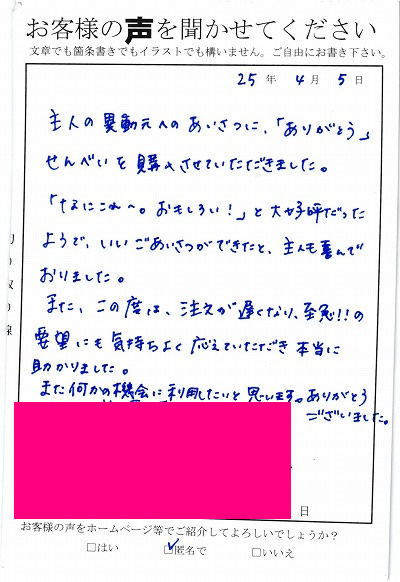 お客様の声を聞かせてください
文章でも箇条書きでもイラストでも構いません。ご自由にお書き下さい。
25 年 4 月 5 日
主人の異動元へのあいさつに、「ありがとう」
せんべいを購入させていただきました。
「なにこれ〜。おもしろい!」と大好評だった
ようで、いいごあいさつができたと、主人も喜んで
おりました。
また、この度は、注文が遅くなり、至急!!の
要望にも気持ちよく応えていただき本当に
助かりました。
また何かの機会に利用したいと思います。ありがとう
ございました。
日
お客様の声をホームページ等でご紹介してよろしいでしょうか?
□はい ☑匿名で □いいえ